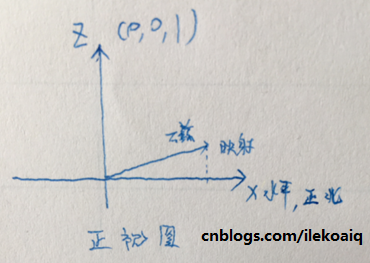 Z (0,0,1)
映射
X 水平,正北
正视图
cnblogs.com/ilekoaiq